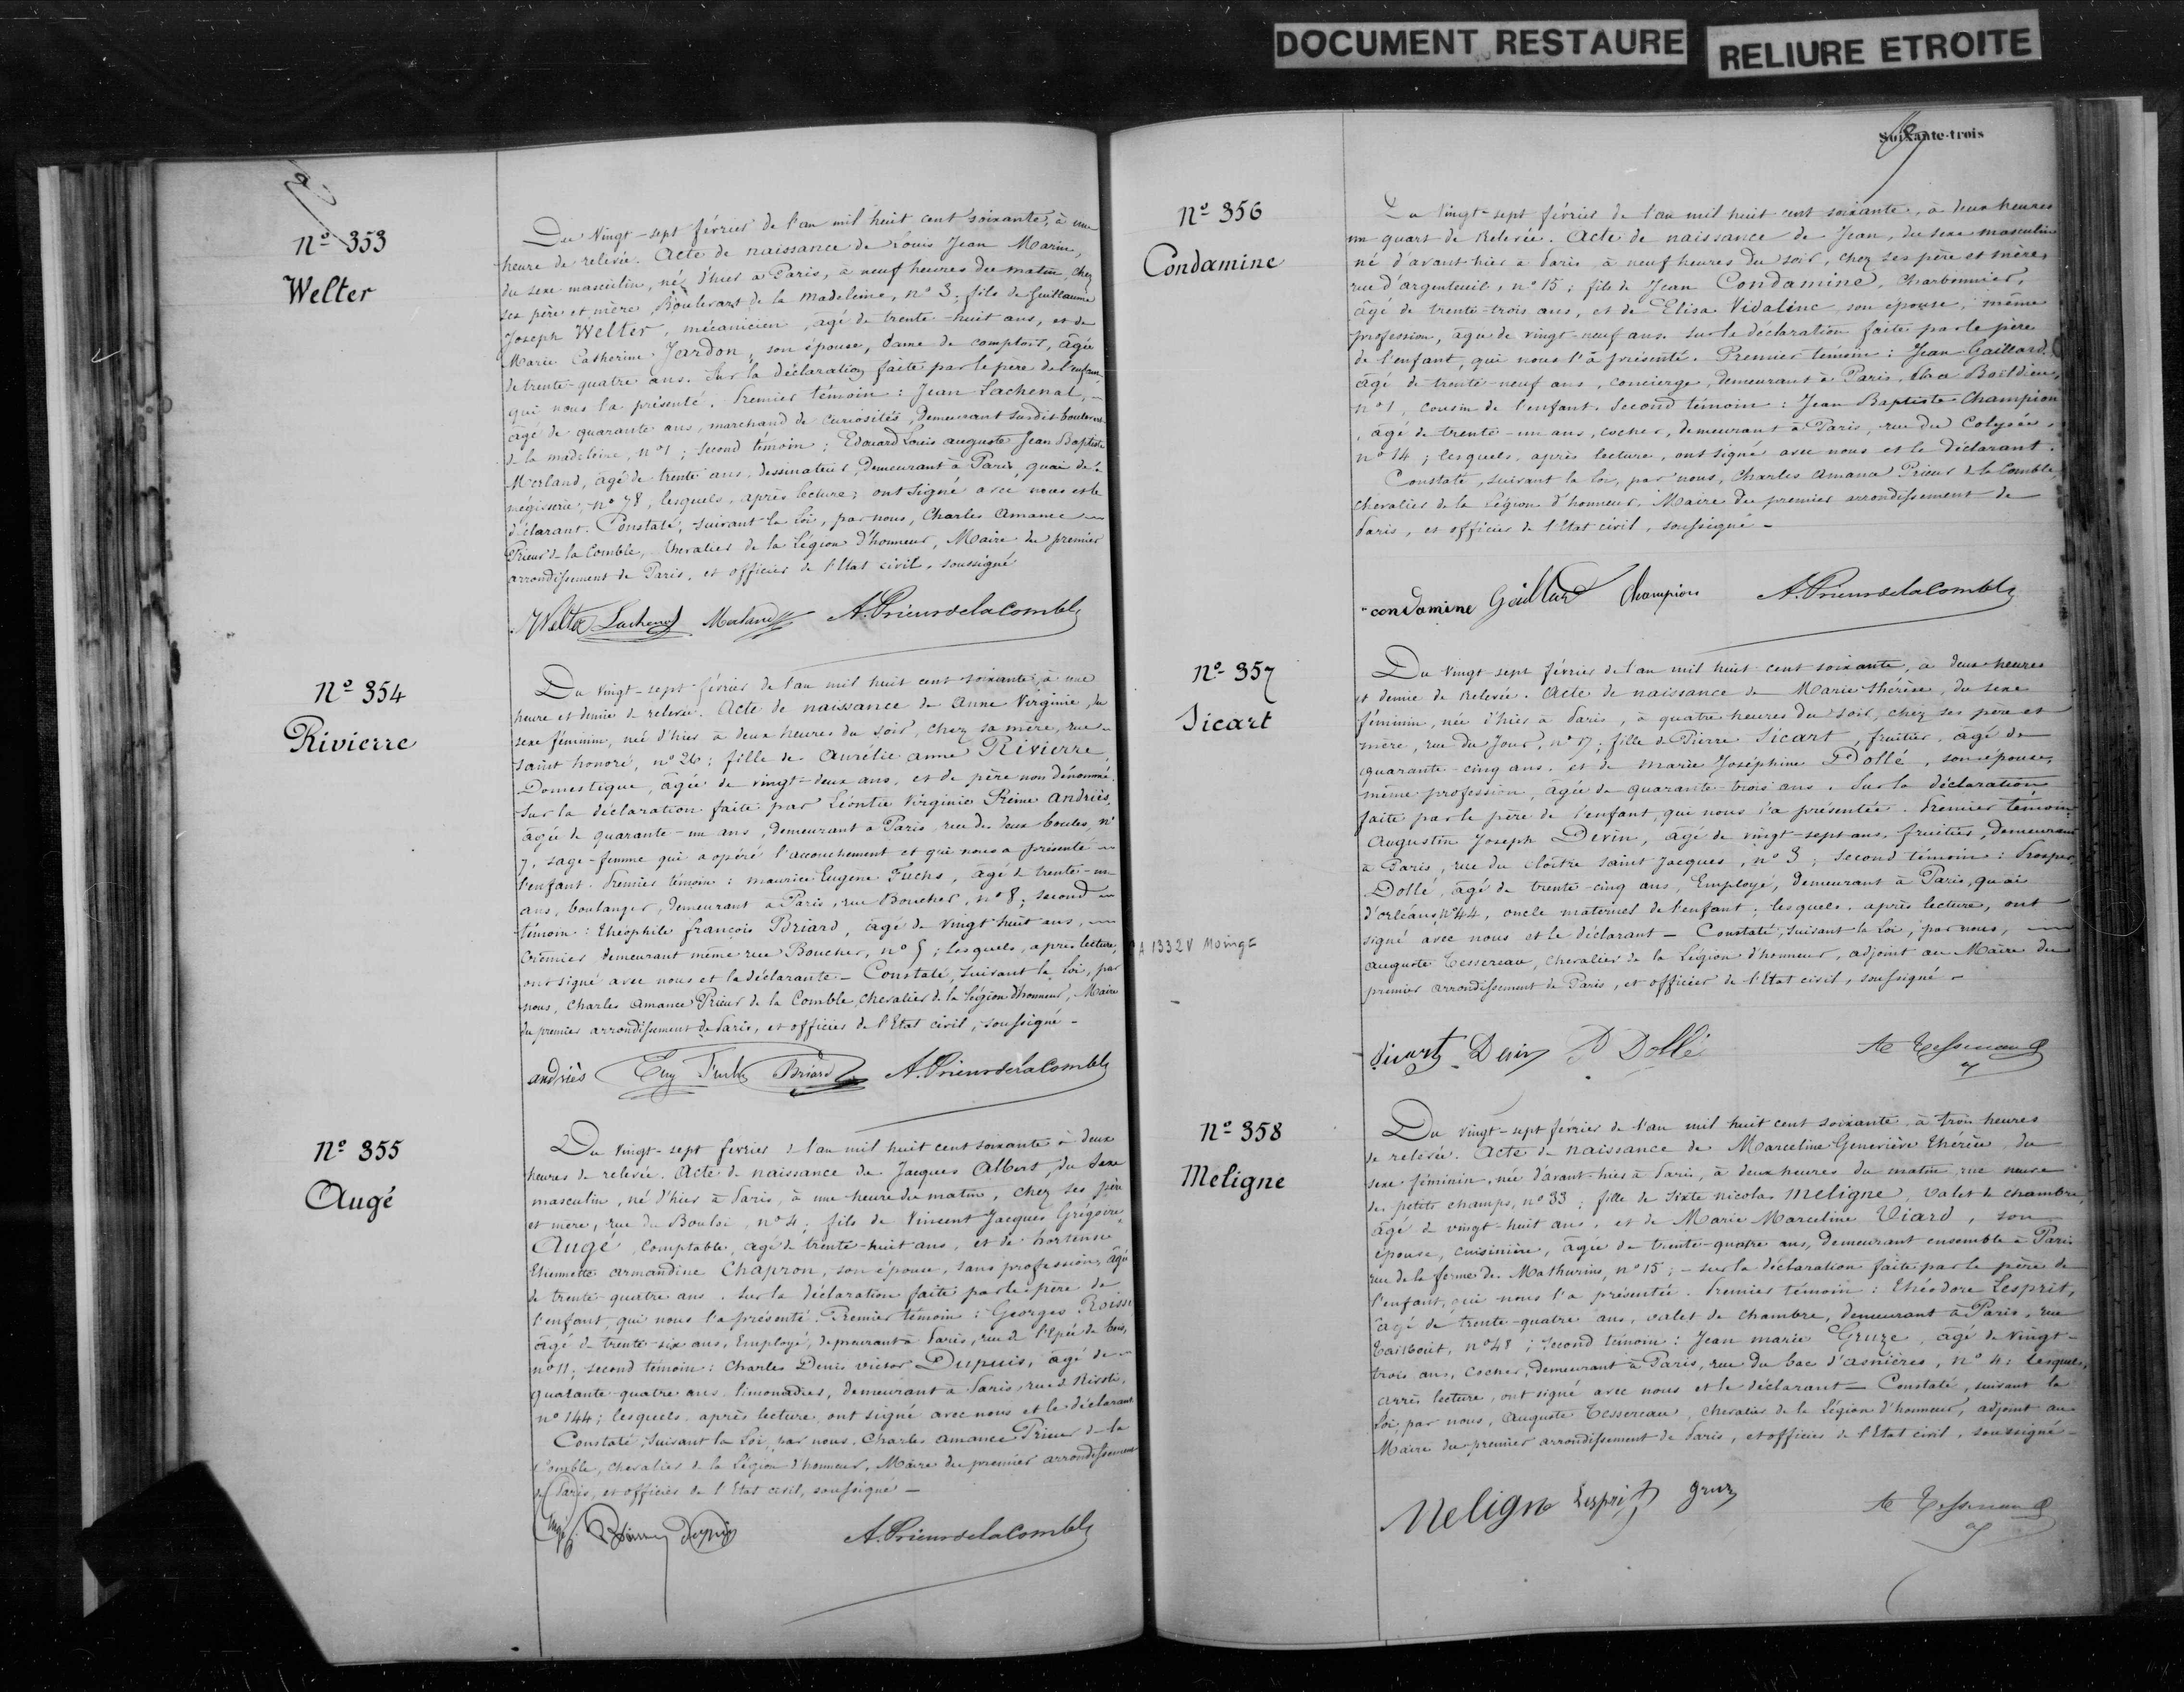 DOCUMENT RESTAURE
RELIURE ETROITE
Nº 353
Welter
Du Vingt-sept février de l'an mil huit cent soixante, à une
heure de relevée. Acte de naissance de Louis Jean Marin,
du sexe masculin, né d'hier à Paris, à neuf heures du matin, chez
ses père et mère, Boulevart de la Madeleine, nº 3; fils de Guillaume
Joseph Welter, mécanicien, âgé de trente-huit ans, et de
Marie Catherine Jardon, son épouse, dame de comptoir, âgée
de trente-quatre ans. Sur la déclaration faite par le père de l'enfant,
qui nous l'a présenté. Premier témoin: Jean Lachenal,
âgé de quarante ans, marchand de curiosités, demeurant susdit boulevart
de la madeleine, nº 1; second témoin: Edouard Louis auguste Jean Baptiste
Merland, âgé de trente ans, dessinateur, demeurant à Paris, quai de la
mégisserie, nº 78, lesquels, après lecture, ont signé avec nous et le
déclarant. Constaté, suivant la Loi, par nous, Charles Amance
Prieur de la Comble, Chevalier de la Légion d'honneur, Maire du premier
arrondissement de Paris, et officier de l'Etat civil, soussigné
Welter Lachenal Merland A. Prieur de la Comble
Nº 354
Rivierre
Du Vingt-sept février de l'an mil huit cent soixante, à une
heure et demie de relevée. Acte de naissance de Anne Virginie, du
sexe féminin, née d'hier à deux heures du soir, chez sa mère, rue
saint honoré, nº 26; fille de Aurélie anne Rivierre,
Domestique, âgée de vingt-deux ans, et de père non dénommé.
Sur la déclaration faite par Léontie Virginie Reine andriès,
âgée de quarante-un ans, demeurant à Paris, rue des deux boules, nº
7, sage-femme qui a opéré l'accouchement et qui nous a présenté
l'enfant. Premier témoin: maurice Eugene Fuchs, âgé de trente-un
ans, boulanger, demeurant à Paris, rue Boucher, nº 8; second
témoin: Théophile françois Briard, âgé de vingt huit ans,
Crêmier demeurant même rue Boucher, nº 5; lesquels, après lecture,
ont signé avec nous et la déclarante - Constaté, suivant la Loi, par
nous, Charles Amance Prieur de la Comble, chevalier de la Légion d'honneur, Maire
du premier arrondissement de Paris, et officier de l'Etat civil, soussigné -
andriès Eug Fuchs Briard A. Prieur de la Comble
Nº 355
Augé
Du Vingt-sept février de l'an mil huit cent soixante à deux
heures de relevée. Acte de naissance de Jacques Albert, du sexe
masculin, né d'hier à Paris, à une heure du matin, chez ses père
et mère, rue du Bouloi, nº 4; fils de Vincent Jacques Grégoire
Augé, Comptable, âgé de trente-huit ans, et de hortense
Etiennette armandine Chapron, son épouse, sans profession, âgée
de trente quatre ans. Sur la déclaration faite par le père de
l'enfant, qui nous l'a présenté. Premier témoin: Georges
âgé de trente-six ans, Employé, demeurant à Paris, rue de l'Epée de bois,
nº 11; second témoin: Charles Denis victor Dupuis, âgé de
quarante-quatre ans, limonadier, demeurant à Paris, rue de Rivoli,
nº 144; lesquels, après lecture, ont signé avec nous et le déclarant.
Constaté, suivant la Loi, par nous, Charles amance Prieur de la
Comble, chevalier de la Légion d'honneur, Maire du premier arrondissement
de Paris, et officier de l'Etat civil, soussigné -
Augé dupuis A. Prieur de la Comble
Soixante-trois
Nº 356
Condamine
Du Vingt-sept février de l'an mil huit cent soixante, à deux heures
un quart de Relevée. Acte de naissance de Jean, du sexe masculin
né d'avant-hier à Paris, à neuf heures du soir, chez ses père et mère,
rue d'argenteuil, nº 15; fils de Jean Condamine, Charbonnier,
âgé de trente-trois ans, et de Elisa Vidalenc, son épouse, même
profession, âgée de vingt-neuf ans. Sur la déclaration faite par le père
de l'enfant, qui nous l'a présenté. Premier témoin: Jean Gaillard,
âgé de trente-neuf ans, concierge, demeurant à Paris, Boïeldieu,
nº 1, cousin de l'enfant. Second témoin: Jean Baptiste Champion
, âgé de trente-un ans, cocher, demeurant à Paris, rue du Colysée,
nº 14; lesquels, après lecture, ont signé avec nous et le déclarant.
Constaté, suivant la loi, par nous, Charles Amance Prieur de la Comble
chevalier de la Légion d'honneur, Maire du premier arrondissement de
Paris, et officier de l'Etat civil, soussigné -
condamine Gaillard Champion A. Prieur de la Comble
Nº 357
Sicart
Du Vingt sept février de l'an mil huit cent soixante, à deux heures
et demie de Relevée. Acte de naissance de Marie Thérèse, du sexe
féminin, née d'hier à Paris, à quatre heures du soir, chez ses père et
mère, rue du Jour, nº 17; fille de Pierre Sicart, fruitier, âgé de
quarante-cinq ans, et de marie Joséphine Dollé, son épouse,
même profession, âgée de quarante-trois ans. Sur la déclaration
faite par le père de l'enfant, qui nous l'a présentée. Premier témoin:
Augustin Joseph Devin, âgé de vingt-sept ans, fruitier, demeurant
à Paris, rue du cloître saint Jacques, nº 3; second témoin: Prosper
Dollé, âgé de trente-cinq ans, Employé, demeurant à Paris, quai
d'orléans, nº 44, oncle maternel de l'enfant; lesquels, après lecture, ont
signé avec nous et le déclarant - Constaté, suivant la Loi, par nous,
Auguste Tessereau, chevalier de la Légion d'honneur, adjoint au Maire du
premier arrondissement de Paris, et officier de l'Etat civil, soussigné -
A 1332V Moingt
Sicart Devin P Dollé A Tessereau
Nº 358
Meligne
Du vingt-sept février de l'an mil huit cent soixante à trois heures
de relevée. Acte de naissance de Marceline Geneviève Thérèse, du
sexe féminin, née d'avant-hier à Paris, à deux heures du matin, rue neuve
des petits champs, nº 33; fille de Sixte nicolas Meligne, Valet de chambre,
âgé de vingt-huit ans, et de Marie Marceline Viard, son
épouse, cuisinière, âgée de trente-quatre ans, demeurant ensemble à Paris
rue de la ferme des Mathurins, nº 15; - sur la déclaration faite par le père de
l'enfant, qui nous l'a présentée. Premier témoin: Théodore Lesprit,
âgé de trente-quatre ans, valet de chambre, demeurant à Paris, rue
Taitbout, nº 48; second témoin: Jean marie Gruze, âgé de vingt-
trois ans, cocher, demeurant à Paris, rue du bac d'asnières, nº 4: lesquels,
après lecture, ont signé avec nous et le déclarant - Constaté, suivant la
Loi, par nous, Auguste Tessereau, chevalier de la Légion d'honneur, adjoint au
Maire du premier arrondissement de Paris, et officier de l'Etat civil, soussigné -
Meligne Lesprit gruze A Tessereau